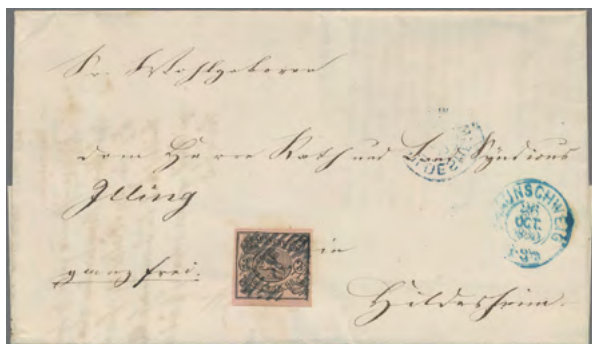 Sr. Wohlgeboren
dem Herrn Rath und Syndicus
Illing
in
ganz frei.
Hildesheim.
BRAUNSCHWEIG
OCT.